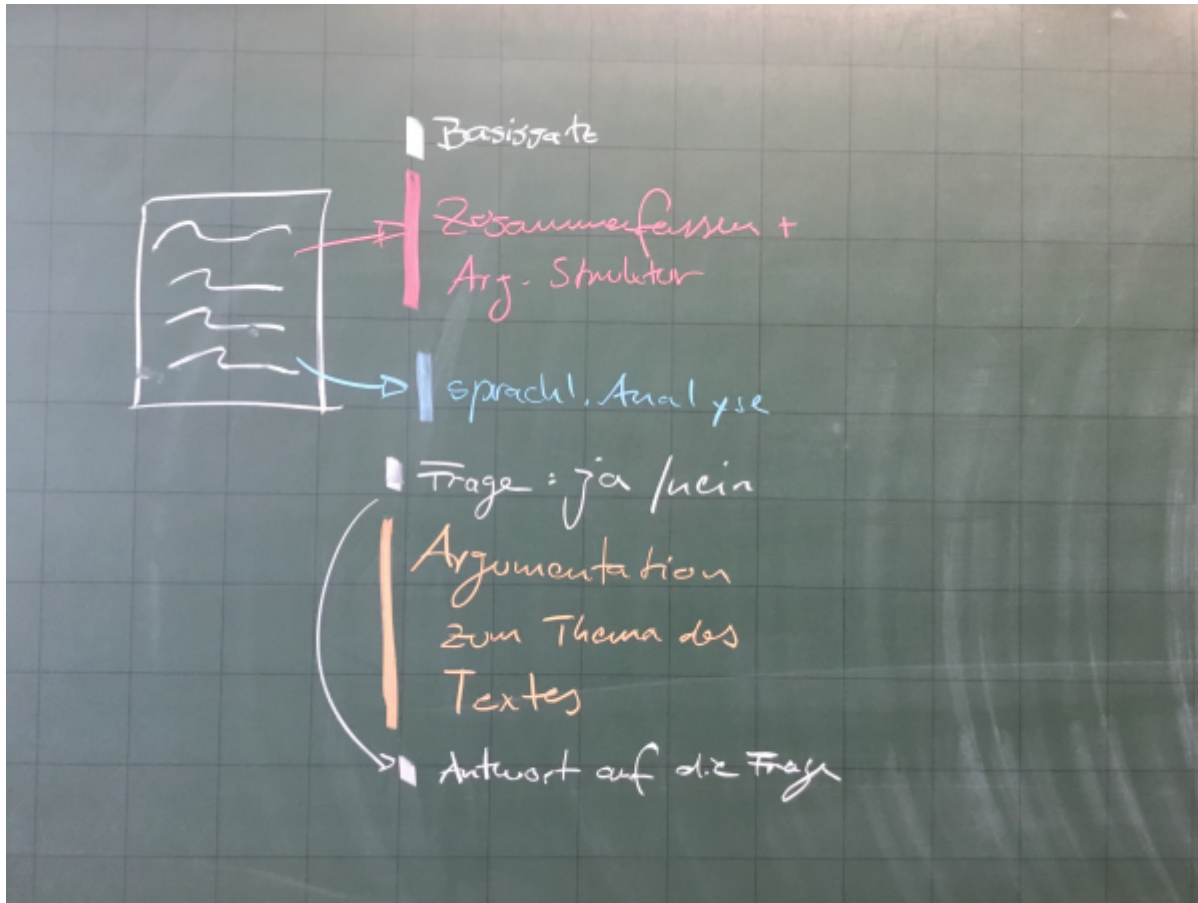 Basissatz
Zusammenfassen +
Arg. Struktur
sprachl. Analyse
Frage: ja / nein
Argumentation
zum Thema des
Textes
Antwort auf die Frage